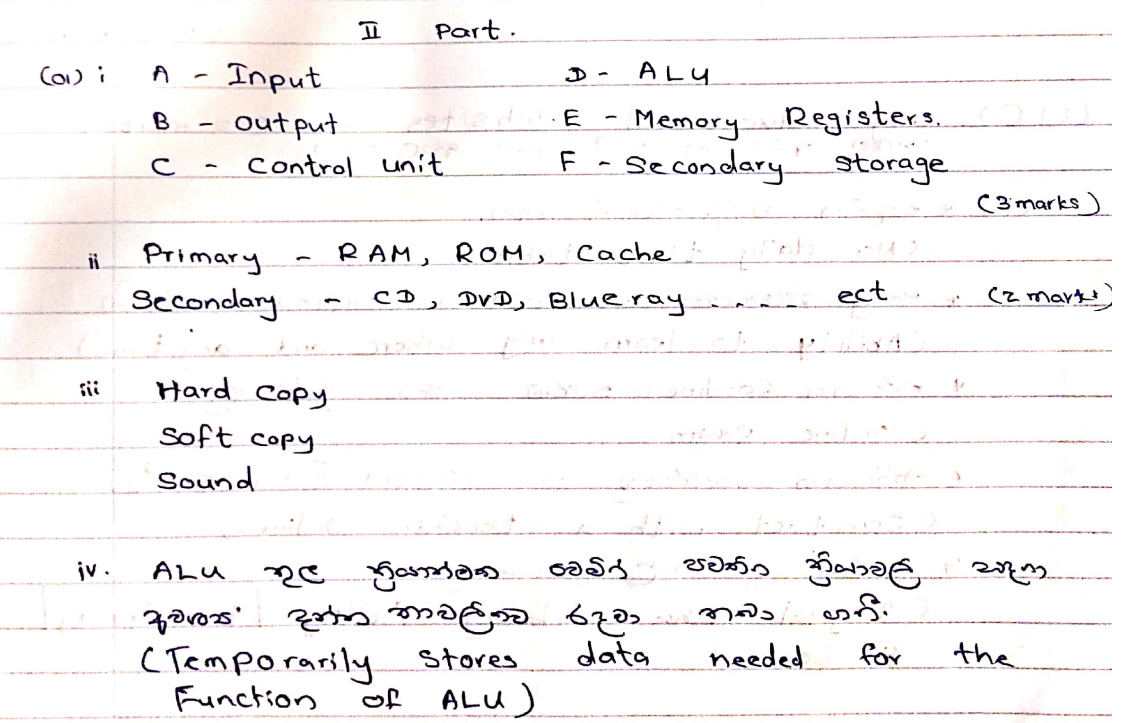 II Part.
(01) i A - Input D - ALU
B - output E - Memory Registers.
C - Control unit F - Secondary storage
(3 marks)
ii Primary - RAM, ROM, Cache
Secondary - CD, DVD, Blue ray .... ect (2 marks)
iii Hard copy
Soft copy
Sound
iv. ALU තුල ක්‍රියාත්මක වෙමින් පවතින ක්‍රියාවලි සඳහා
අවශ්‍ය දත්ත තාවලිකව රඳවා තබා ගනී.
(Temporarily stores data needed for the
Function of ALU)